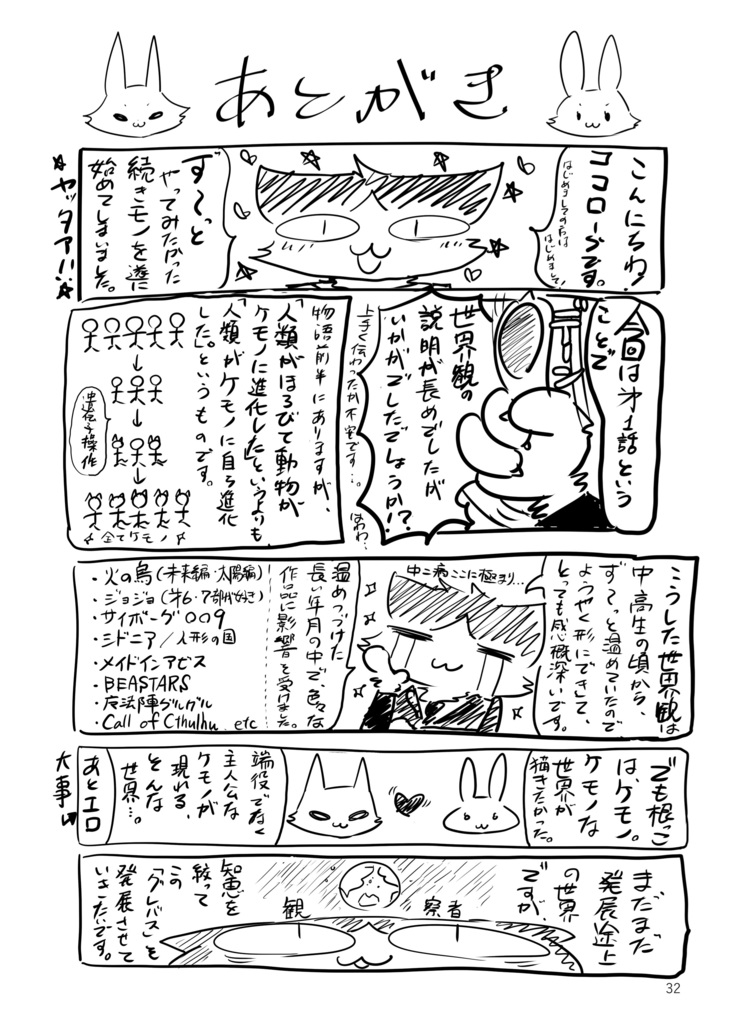 あとがき
こんにちわ!
ココローグです。
はじめましての方は
はじめまして!
ず〜っと
やってみたかった
続きモノを遂に
始めてしまいました。
☆ヤッタア!!☆
今回は才1話という
ことで
世界観の
説明が長めでしたが
いかがでしたでしょうか!?
上手く伝わったか不安です…。
はわわ…
物語前半にありますが、
「人類がほろびて動物が
ケモノに進化した」というよりも、
「人類がケモノに自ら進化
した。」というものです。
遺伝子操作
全てケモノ
こうした世界観は
中高生の頃から、
ず〜っと温めていたので
ようやく形にできて、
とっても感慨深いです。
中二病ここに極まり…
温めつづけた
長い年月の中で、色々な
作品に影響を受けました。
・火の鳥(未来編・太陽編)
・ジョジョ(才6・7部が好き)
・サイボーグ009
・シドニア/人形の国
・メイドインアビス
・BEASTARS
・魔法陣グルグル
・Call of Cthulhu etc
でも根っこ
は、ケモノ。
ケモノな
世界が
描きたかった。
端役でなく
主人公な
ケモノが
現れる、
そんな
世界…。
あとエロ
大事
まだまだ
発展途上
の世界
ですが、
観察者
知恵を
絞って
この
「グレバス」を
発展させて
いきたいです。
32